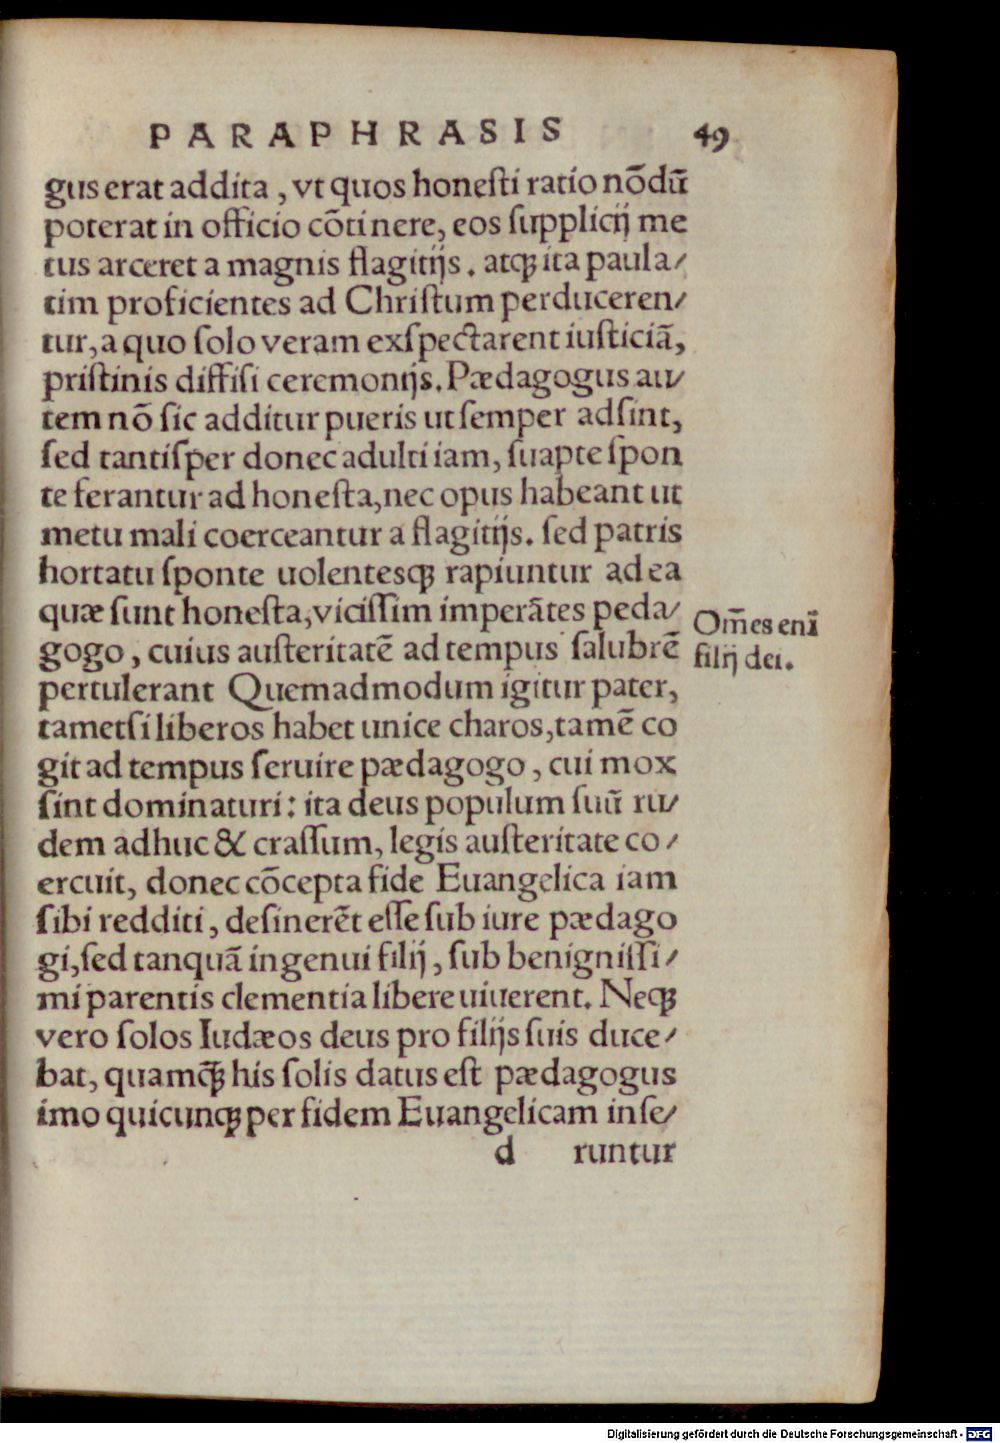 PARAPHRASIS 49
gus erat addita , vt quos honeſti ratio nõdũ
poterat in officio cõtinere, eos ſupplicij me
tus arceret a magnis flagitijs . atqꝫ ita paula/
tim proficientes ad Chriſtum perduceren/
tur, a quo ſolo veram exſpectarent iuſticiã,
priſtinis diffiſi ceremonijs. Pædagogus au/
tem nõ ſic additur pueris ut ſemper adſint,
ſed tantiſper donec adulti iam, ſuapte ſpon
te ferantur ad honeſta, nec opus habeant ut
metu mali coerceantur a flagitijs. ſed patris
hortatu ſponte uolentesqꝫ rapiuntur ad ea
quæ ſunt honeſta, viciſſim imperãtes peda/
gogo , cuius auſteritatẽ ad tempus ſalubrẽ
pertulerant Quemadmodum igitur pater,
tametſi liberos habet unice charos, tamẽ co
git ad tempus ſeruire pædagogo , cui mox
ſint dominaturi : ita deus populum ſuũ ru/
dem adhuc & craſſum, legis auſteritate co/
ercuit, donec cõcepta fide Euangelica iam
ſibi redditi , deſinerẽt eſſe ſub iure pædago
gi, ſed tanquã ingenui filij , ſub benigniſſi/
mi parentis clementia libere uiuerent. Neqꝫ
vero ſolos Iudæos deus pro filijs ſuis duce/
bat, quamqꝫ̃ his ſolis datus eſt pædagogus
imo quicunqꝫ per fidem Euangelicam inſe/
d runtur
Om̃es enĩ
filij dei.
Digitalisierung gefördert durch die Deutsche Forschungsgemeinschaft - DFG